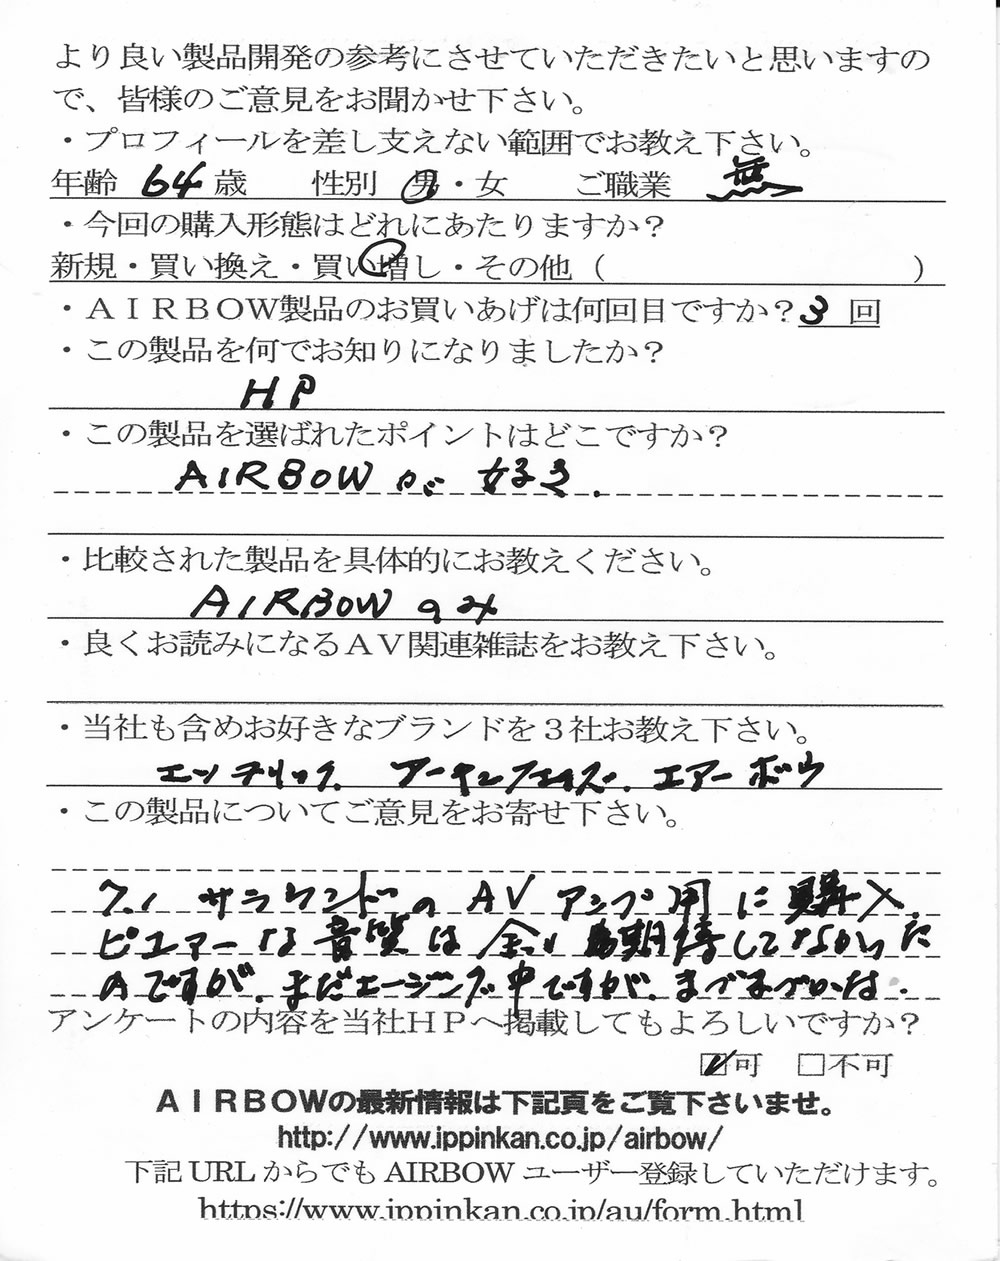 より良い製品開発の参考にさせていただきたいと思いますの
で、皆様のご意見をお聞かせ下さい。
・プロフィールを差し支えない範囲でお教え下さい。
年齢 64 歳 性別 男・女 ご職業 無
・今回の購入形態はどれにあたりますか？
新規・買い換え・買い増し・その他（ ）
・ＡＩＲＢＯＷ製品のお買いあげは何回目ですか？3 回
・この製品を何でお知りになりましたか？
HP
・この製品を選ばれたポイントはどこですか？
AIRBOW が 好き.
・比較された製品を具体的にお教えください。
AIRBOW のみ
・良くお読みになるＡＶ関連雑誌をお教え下さい。
・当社も含めお好きなブランドを３社お教え下さい。
エソテリック. アーキュフェイズ. エアーボウ
・この製品についてご意見をお寄せ下さい。
7.1 サラウンドの AV アンプ用に購入.
ピュアーな音質は余り期待してなかった
のですが. まだエージング中ですが. まずまずかな.
アンケートの内容を当社ＨＰへ掲載してもよろしいですか？
☑可 □不可
ＡＩＲＢＯＷの最新情報は下記頁をご覧下さいませ。
http://www.ippinkan.co.jp/airbow/
下記 URL からでも AIRBOW ユーザー登録していただけます。
https://www.ippinkan.co.jp/au/form.html